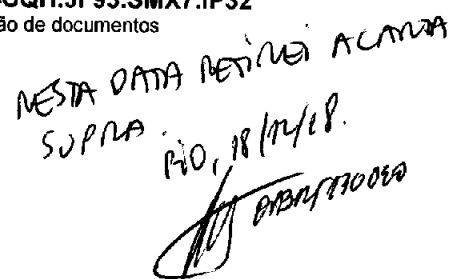 .JF93.SMX7.IP32
ão de documentos
NESTA DATA RETIREI A CARTA
SUPRA.
RIO, 18/12/18.